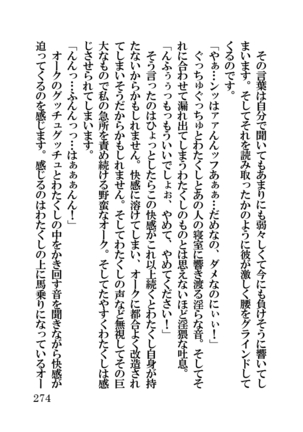 その言葉は自分で聞いてもあまりにも弱々しくて今にも負けそうに響いてし
まいます。そしてそれを読み取ったかのように彼が激しく腰をグラインドして
くるのです。
「やぁ…ンッはァァんッフあぁぁ…だめなの、ダメなのにぃぃ！」
ぐっちゅぐっちゅとわたくしとあの人の寝室に響き渡る淫らな音。そしてそ
れに合わせて漏れ出てしまうわたくしのものとは思えないほど淫猥な吐息。
「んふぅぅっもっもういいでしょぉ、やめて、やめてください！」
そう言ったのはひょっとしたらこの快感がこれ以上続くとわたくし自身が持
たないからかもしれません。快感に溶けてしまい、オークに都合よく改造され
てしまいそうだからかもしれません。そしてわたくしの声など無視してその巨
大なもので私の急所を責め続ける野蛮なオーク。そしてたやすくわたくしは感
じさせられてしまいます。
「んんっ…ふんんっっ…はぁぁんん！」
オークのグッチュグッチュとわたくしの中をかき回す音を聞きながら快感が
迫ってくるのを感じます。感じるのはわたくしの上に馬乗りになっているオー
274